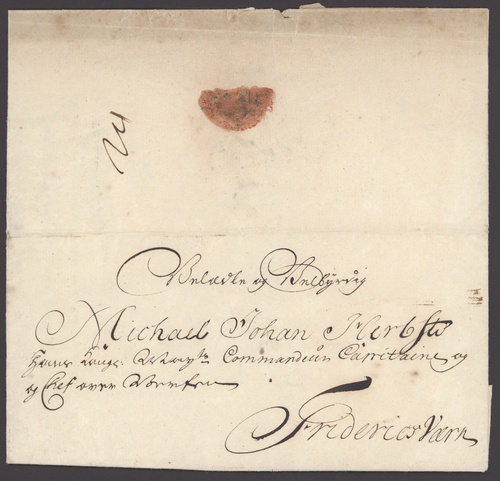 Velædle og Velbyrdig
Michael Johan Herbst
Hans Kongl. Mayts Commandeur Capitaine og
og Chef over Werfen
Fridericsværn